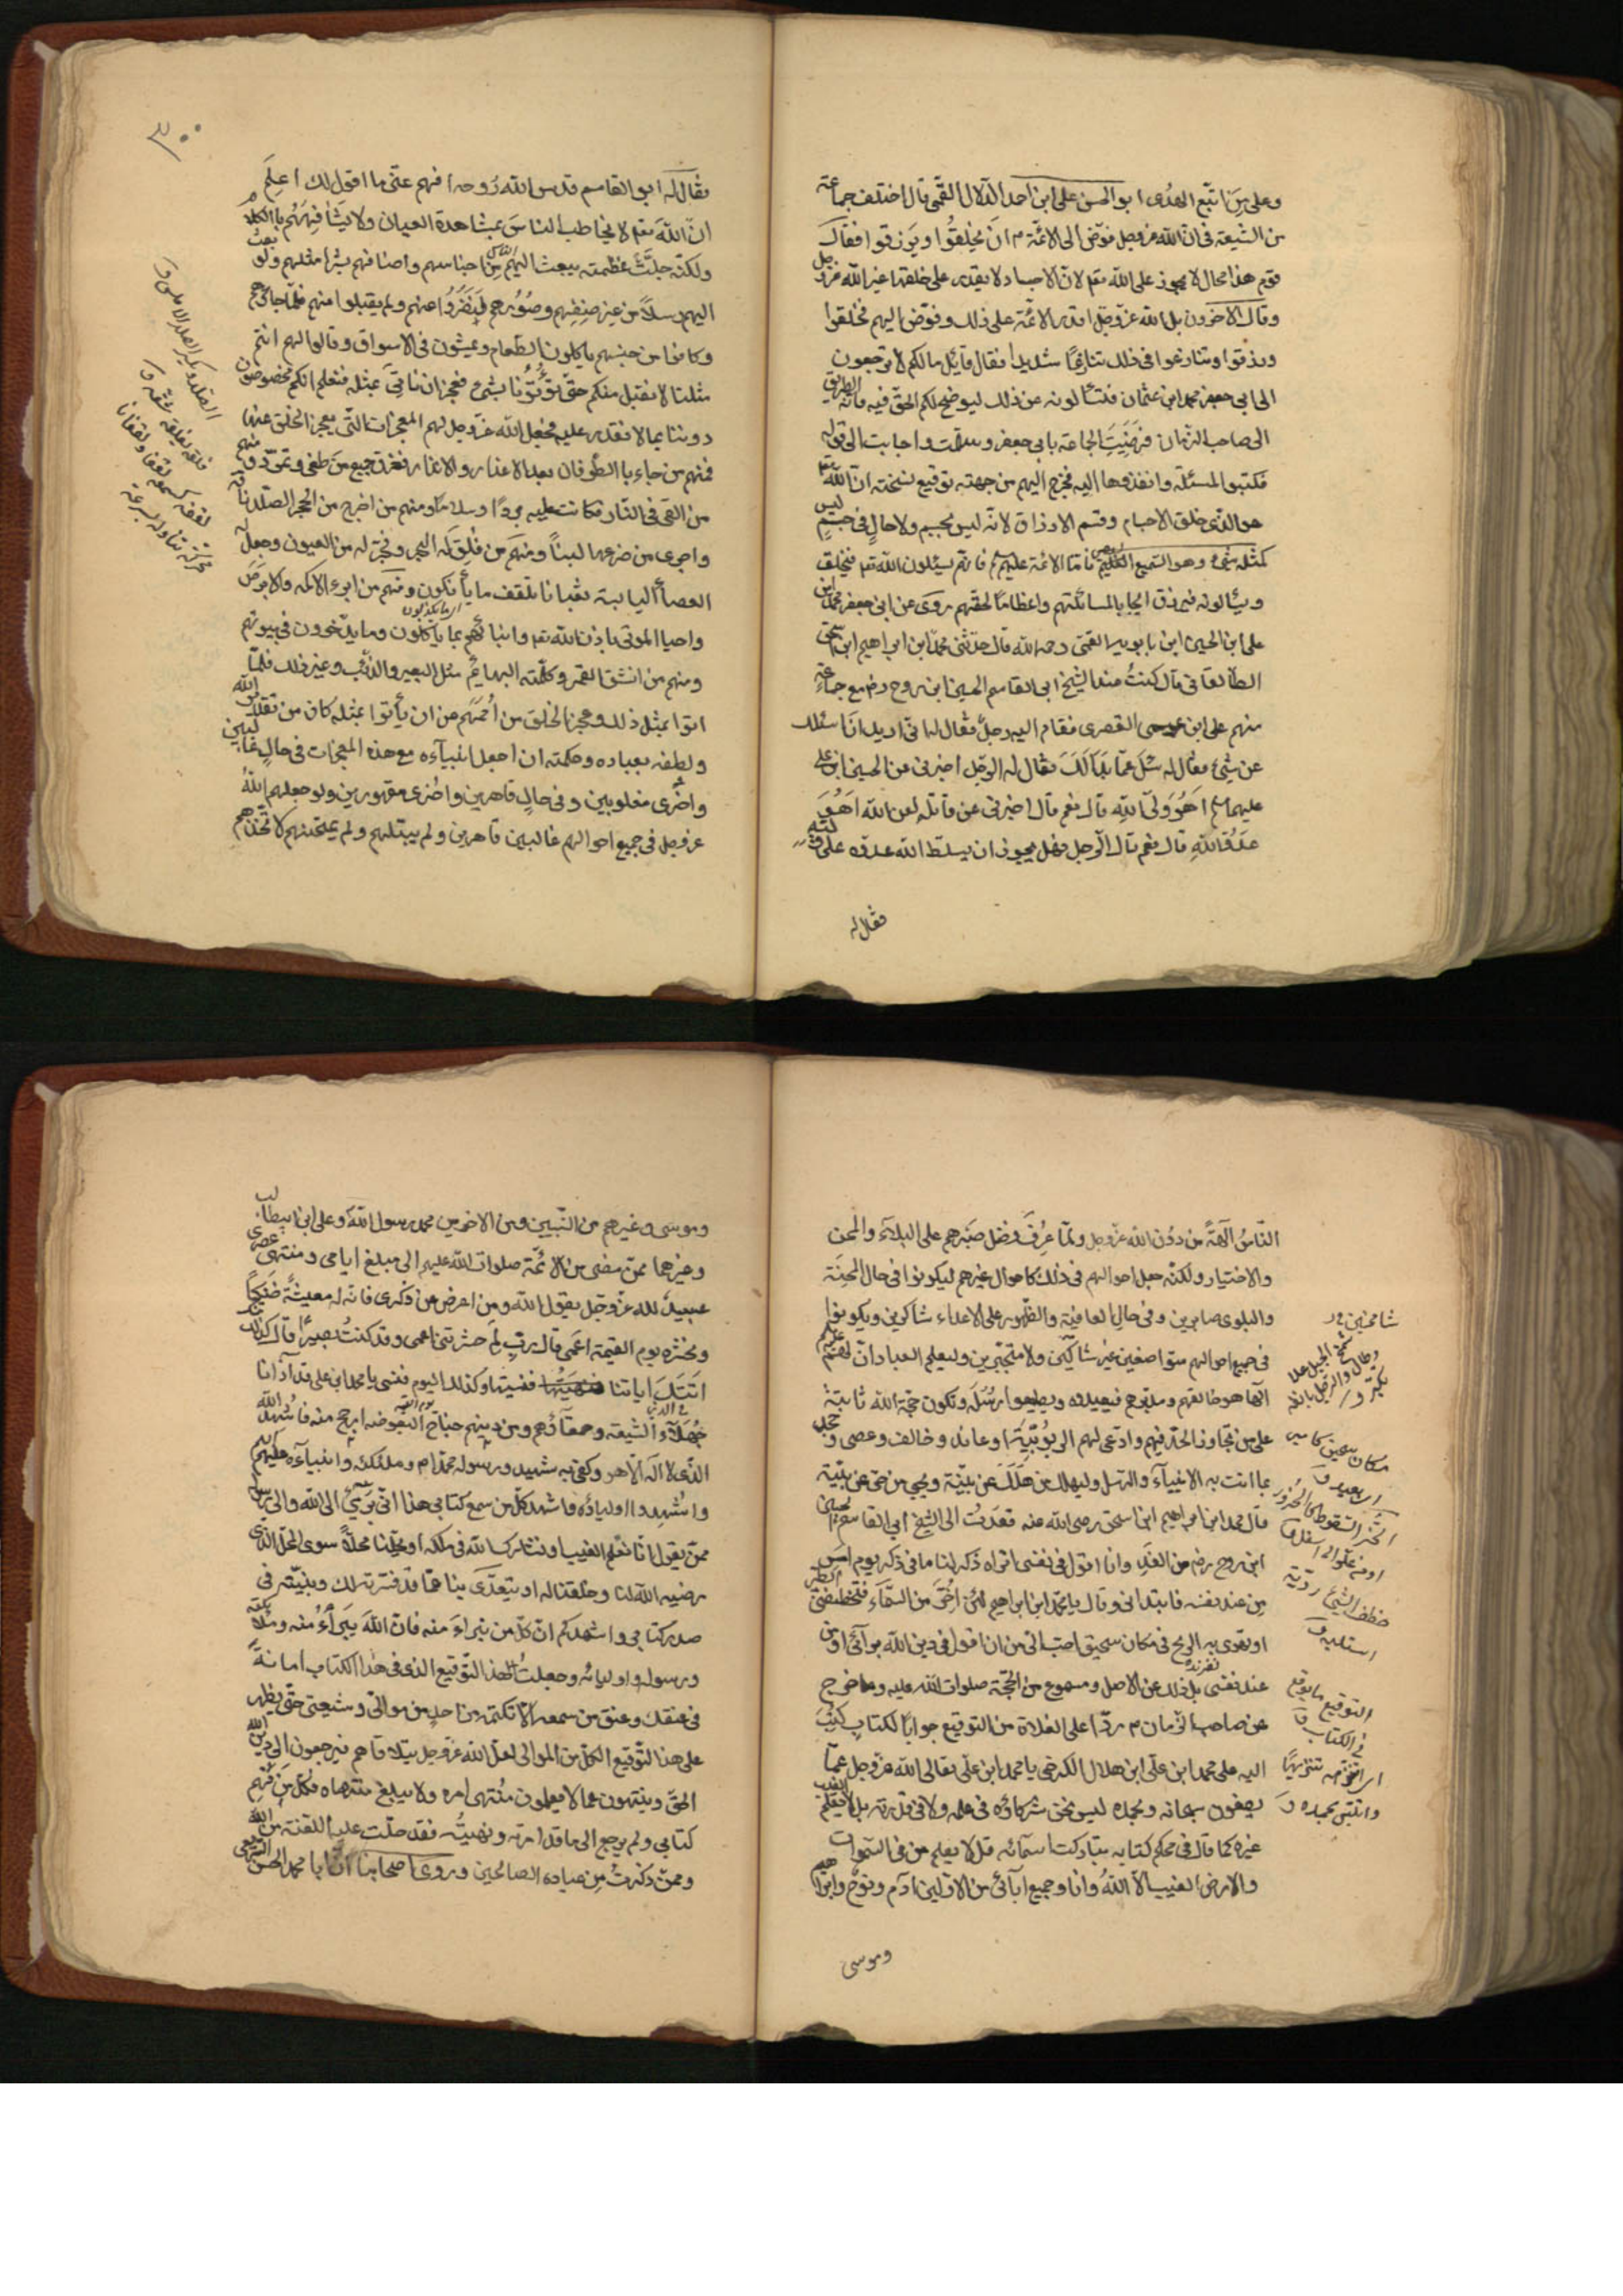 وعلى من اتبع الهدى ابو الحسن على ابن احمد الدلال القمى قال اختلف جماعة
من الشيعة فى ان الله عز وجل فوض الى الائمة م ان يخلقوا ويرزقوا فقال
قوم هذا محال لا يجوز على الله تعم لان الاجساد لا يقدر على خلقها غير الله عز وجل
وقال الآخرون بل الله عز وجل اقدر الائمة على ذلك وفوض اليهم فخلقوا
ورزقوا وتنازعوا فى ذلك تنازعًا شديدا فقال قائل ما لكم لا ترجعون
الى ابى جعفر محمد ابن عثمان فتسألونه عن ذلك ليوضح لكم الحق فيه فانه الطريق
الى صاحب الزمان فرضيت الجماعة بابى جعفر وسلمت واجابت الى قوله
فكتبوا المسئلة وانفذوها اليه فخرج اليهم من جهته توقيع نسخته ان الله تعم
هو الذى خلق الاجسام وقسم الارزاق لانه ليس بجسم ولا حال فى جسم ليس
كمثله شىء وهو السميع العليم فاما الائمة عليهم فانهم يسئلون الله تعم فيخلق
ويسألونه فيرزق ايجابا لمسائلتهم واعظاما لحقهم روى عن ابى جعفر محمد ابن
على ابن الحسين ابن بابويه القمى رحمه الله قال حدثنى محمد ابن ابراهيم ابن اسحق
الطالقانى قال كنت عند الشيخ ابى القاسم الحسين ابن روح رض مع جماعة
منهم على ابن عيسى القصرى فقام اليه رجل فقال له انى اريد ان اسئلك
عن شىء فقال له سل عما بدا لك فقال له الرجل اخبرنى عن الحسين ابن على
عليهما اهو ولى الله قال نعم قال اخبرنى عن قاتله لعن الله اهو
عدو الله قال نعم قال الرجل فهل يجوز ان يسلط الله عدوه على وليه
فقال له
٣٠٠
فقال له ابو القاسم قدس الله روحه افهم عنى ما اقول لك اعلم
ان الله تعم لا يخاطب الناس بمشاهدة العيان ولا يشافههم بالكلام
ولكنه جلت عظمته يبعث اليهم من اجناسهم واصنافهم بشرا مثلهم ولو بعث
اليهم رسلاً من غير صنفهم وصورهم لنفروا عنهم ولم يقبلوا منهم فلما جاؤهم
وكانوا من جنسهم يأكلون الطعام ويمشون فى الاسواق وقالوا لهم انتم
مثلنا لا نقبل منكم حتى تؤتونا بشىء نعجز ان نأتى بمثله فنعلم انكم مخصوصون
دوننا بما لا نقدر عليه فجعل الله عز وجل لهم المعجزات التى يعجز الخلق عنها
فمنهم من جاء بالطوفان بعد الاعذار والانذار فغرق جميع من طغى وتمرد ومنهم
من القى فى النار فكانت عليه بردًا وسلاما ومنهم من اخرج من الحجر الصلد ناقة
واجرى من ضرعها لبنًا ومنهم من فلق له البحر وفجر له من العيون وجعل له
العصا اليابسة ثعبانا تلقف ما يأفكون ومنهم من ابرء الاكمه والابرص
واحيا الموتى باذن الله تعم وانبأهم بما يأكلون وما يدخرون فى بيوتهم
ومنهم من انشق القمر وكلمته البهايم مثل البعير والذئب وغير ذلك فلما
اتوا بمثل ذلك وعجز الخلق من اممهم من ان يأتوا بمثله كان من تقدير الله
ولطفه بعباده وحكمته ان جعل انبيآءه مع هذه المعجزات فى حال غالبين
واخرى مغلوبين وفى حال قاهرين واخرى مقهورين ولو جعلهم الله
عز وجل فى جميع احوالهم غالبين قاهرين ولم يبتلهم ولم يمتحنهم لاتخذهم
الناس آلهةً من دون الله عز وجل ولما عرف فضل صبرهم على البلاء والمحن
والاختبار ولكنه جعل احوالهم فى ذلك كاحوال غيرهم ليكونوا فى حال المحنة
والبلوى صابرين وفى حال العافية والظهور على الاعداء شاكرين ويكونوا
فى جميع احوالهم متواضعين غير شامخين ولا متجبرين وليعلم العباد ان لهم
الهًا هو خالقهم ومدبرهم فيعبدوه ويطيعوا رسله وتكون حجة الله ثابتة
على من تجاوز الحد فيهم وادعى لهم الربوبية او عاند وخالف وعصى وجحد
بما اتت به الانبيآء والرسل وليهلك من هلك عن بينة ويحيى من حى عن بينة
قال محمد ابن ابراهيم ابن اسحق رضى الله عنه فعدت الى الشيخ ابى القاسم الحسين
ابن روح رض من الغد وانا اقول فى نفسى اتراه ذكر لنا ما ذكر يوم امس
من عند نفسه فابتدانى وقال يا محمد ابن ابراهيم لئن اخر من السماء فتخطفنى الطير
او تهوى به الريح فى مكان سحيق احب الى من ان اقول فى دين الله برأئى او من
عند نفسى بل ذلك عن الاصل ومسموع من الحجة صلوات الله عليه ومما خرج
عن صاحب الزمان م ردًا على الغلاة من التوقيع جوابًا لكتاب كتب
اليه على محمد ابن على ابن هلال الكرخى يا محمد ابن على تعالى الله عز وجل عما
يصفون سبحانه وبحمده ليس نحن شركاؤه فى علمه ولا فى قدرته بل لا يعلم الغيب
غيره كما قال فى محكم كتابه تباركت اسمائه قل لا يعلم من فى السموات
والارض الغيب الا الله وانا وجميع آبائى من الاولين آدم ونوح وابراهيم
وموسى
وموسى وغيرهم من النبيين ومن الآخرين محمد رسول الله وعلى ابن ابيطالب
وغيرهما ممن مضى من الائمة صلوات الله عليهم الى مبلغ ايامى ومنتهى عصرى
عبيد لله عز وجل يقول الله ومن اعرض عن ذكرى فان له معيشة ضنكا
ونحشره يوم القيمة اعمى قال رب لم حشرتنى اعمى وقد كنت بصيرا قال كذلك
اتتك اياتنا فنسيتها وكذلك اليوم تنسى يا محمد ابن على قد آذانا
جهلاء الشيعة وحمقاؤهم ومن دينهم جناح البعوضة ارجح منه فاشهد الله
الذى لا اله الا هو وكفى به شهيد ورسوله محمدا م وملئكته وانبياءه
واشهدوا اولياؤه فاشهد كل من سمع كتابى هذا انى برىء الى الله والى رسوله
ممن يقول انا نعلم الغيب او نشارك الله فى ملكه او يحلنا محلاً سوى المحل الذى
رضيه الله لنا وخلقنا له او يتعدى بنا عما قد فسرته لك وبينته فى
صدر كتابى واشهدكم ان كل من نبراء منه فان الله يبراء منه وملائكته
ورسوله واوليائه وجعلت هذا التوقيع الذى فى هذا الكتاب امانةً
فى عنقك وعنق من سمعه الا تكتمه من احد من موالى وشيعتى حتى يظهر
على هذا التوقيع الكل من الموالى لعل الله عز وجل يتلافاهم فيرجعون الى دين الله
الحق وينتهون عما لا يعلمون منتهى امره ولا يبلغ منتهاه فكل من فهم
كتابى ولم يرجع الى ما قد امرته ونهيته فقد حلت عليه اللعنة من الله
وممن ذكرت من عباده الصالحين وروى اصحابنا ان ابا محمد الحسن الشريعى